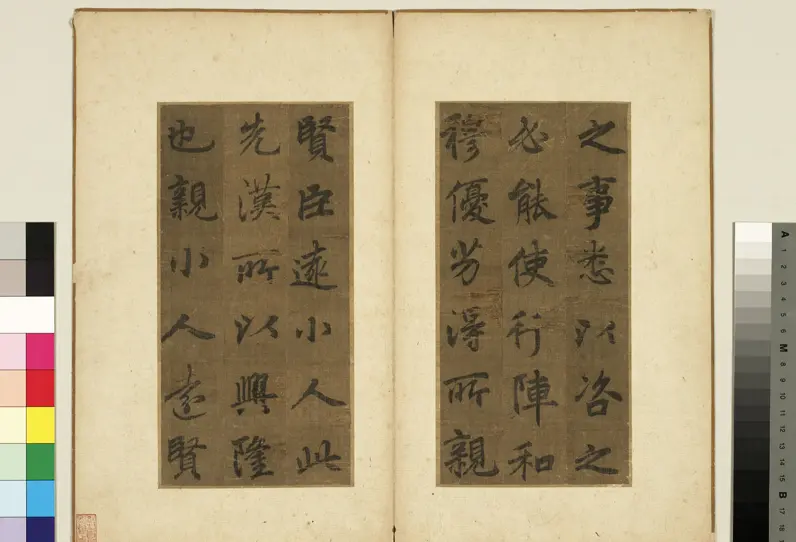 之事悉以咨之
必能使行陣和
穆優劣得所親
賢臣遠小人此
先漢所以興隆
也親小人遠賢
A 1 2 3 4 5 6 M 8 9 10 11 12 13 14 15 B 17 18